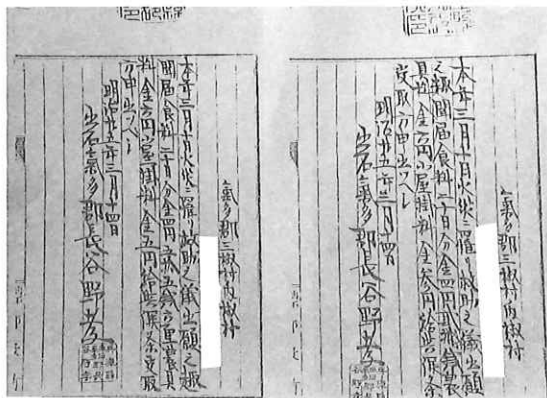 氣多郡三椒村内椒村
本年三月十日火災ニ罹リ救助之儀出願
之趣聞届食料二十日分金四円農
具料金六円小屋掛料金参円給與候条
受取方申出ヘシ
明治廿五年三月十四日
出石氣多郡長谷野孝
氣多郡三椒村内椒村
本年三月十日火災ニ罹リ救助之儀出願之趣
聞届食料二十日分金四円農具
料金六円小屋掛料金五円給與候条受取
方申出ヘシ
明治廿五年三月十四日
出石氣多郡長谷野孝